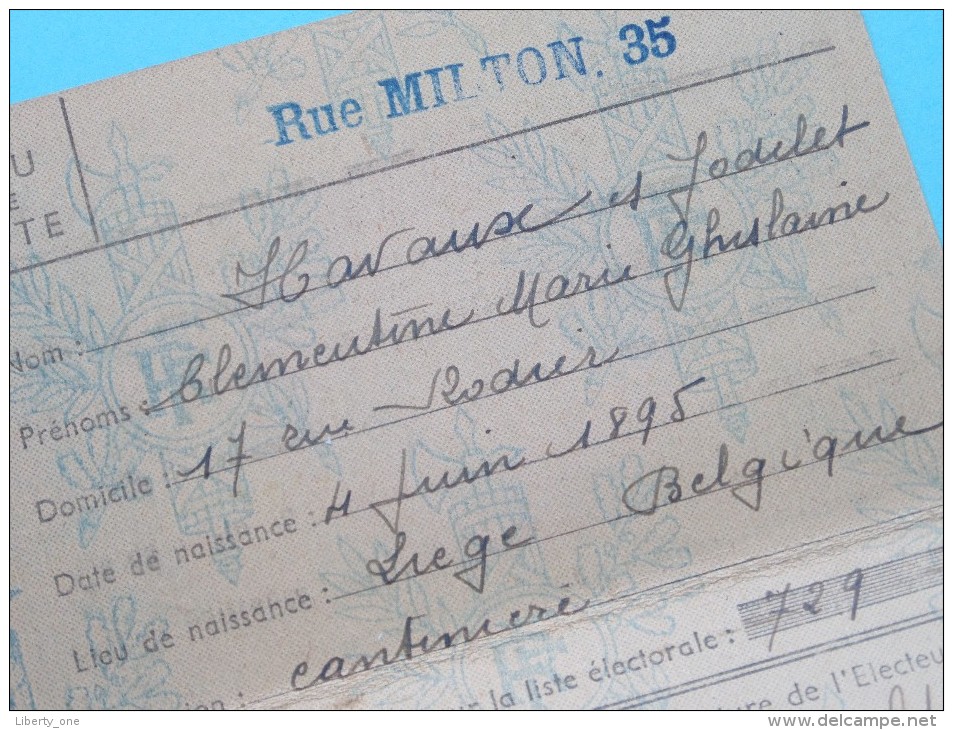 Rue MILTON. 35
U
E
TE
Nom : Havaux et Jodelet
Prénoms : Clementine Marie Ghislaine
Domicile : 17 rue Rodier
Date de naissance : 4 Juin 1895
Lieu de naissance : Liege Belgique
ion : cantiniere
la liste électorale : 729
ure de l'Electeu
Liberty_one
www.delcampe.net